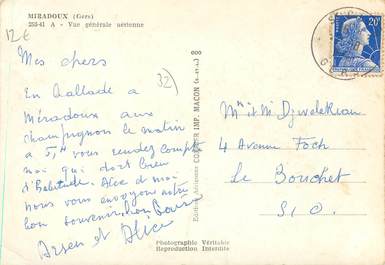 MIRADOUX (Gers)
253-41 A - Vue générale aérienne
12€
32)
Mes chers
En ballade a
Miradoux aux
champignon le matin
a 5H vous rendez compte
moi qui dort bien
d'habitude. Alice et moi
nous vous envoyons notre
bon souvenir. bon Baiser
Arsen et Alice
COMBIER IMP. MACON
Mr et Mme
4 Avenue Foch
Le Bouchet
S/O.
20F
Photographie Véritable
Reproduction Interdite